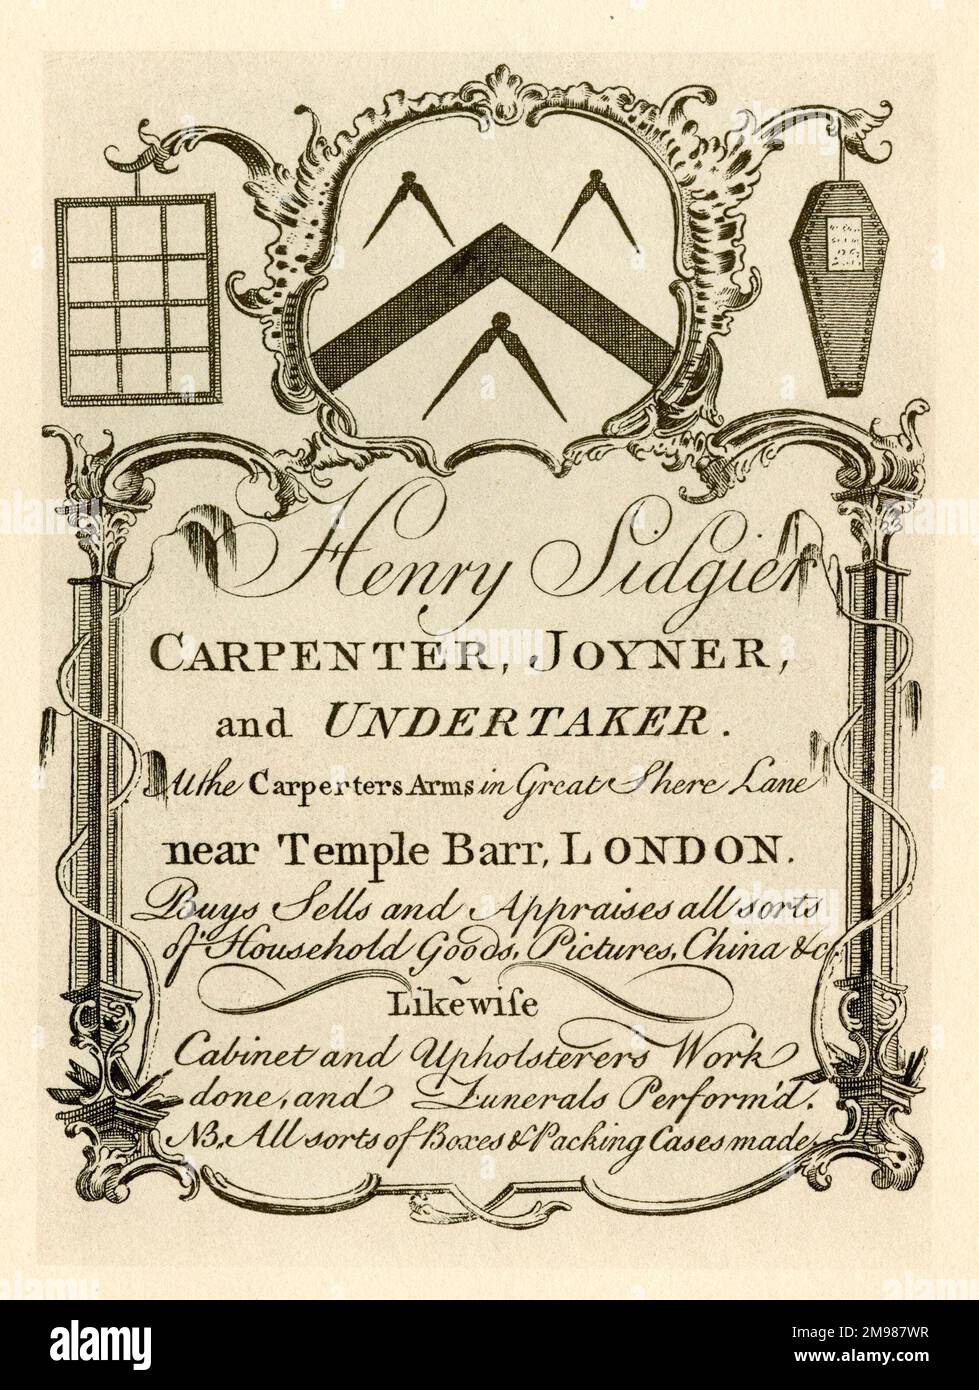 Henry Sidgier
CARPENTER, JOYNER,
and UNDERTAKER.
At the Carpenters Arms in Great Shere Lane
near Temple Barr, LONDON.
Buys Sells and Appraises all sorts
of Household Goods, Pictures, China &c.
Likewiſe
Cabinet and Upholsterers Work
done, and Funerals Perform'd.
NB. All sorts of Boxes & Packing Cases made.
alamy
Image ID: M987WR
www.alamy.com